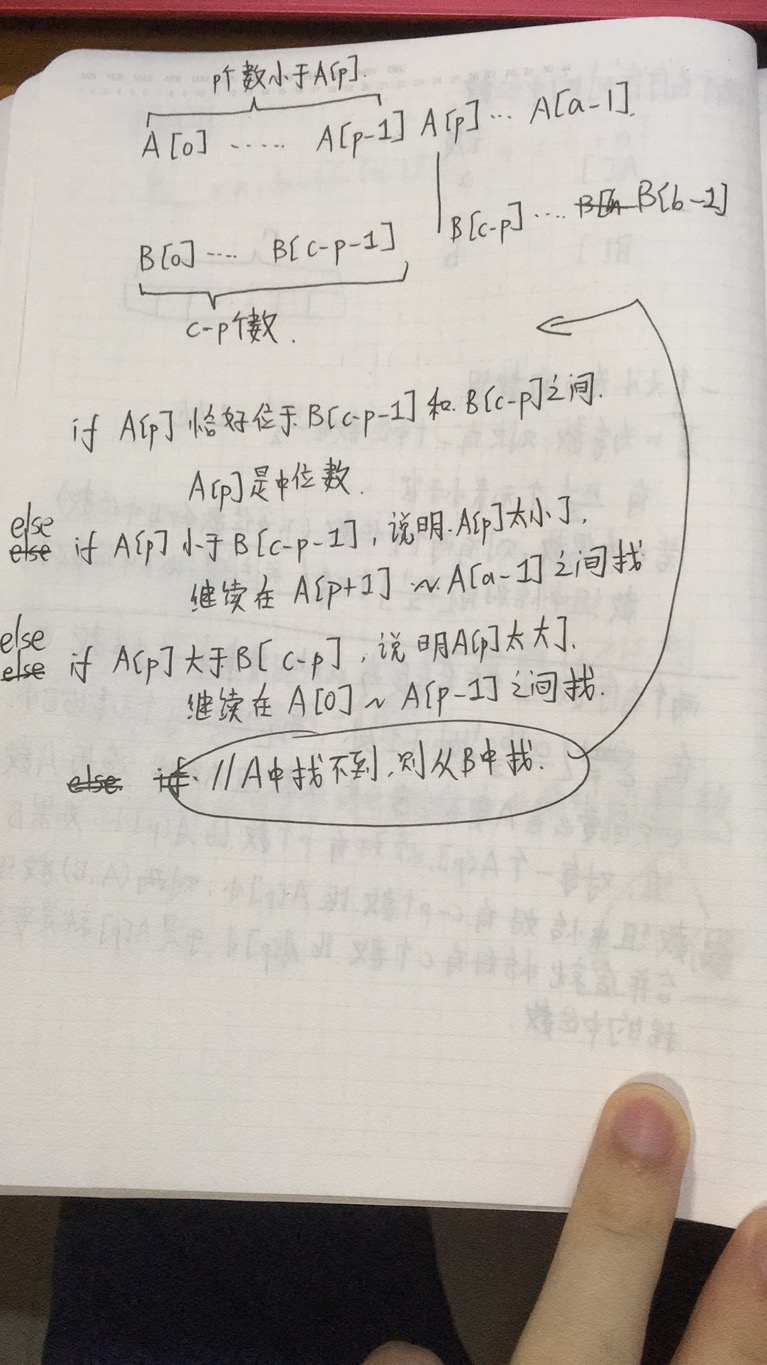 p个数小于A[p].
A[0] ...... A[p-1] A[p]... A[a-1].
B[0] .... B[c-p-1] B[c-p] .... B[b-1]
c-p个数.
if A[p] 恰好位于 B[c-p-1] 和 B[c-p]之间.
A[p]是中位数.
else if A[p] 小于 B[c-p-1], 说明 A[p]太小了,
继续在 A[p+1] ~ A[a-1] 之间找
else if A[p] 大于 B[c-p], 说明A[p]太大了.
继续在 A[0] ~ A[p-1] 之间找.
else if // A中找不到, 则从B中找.